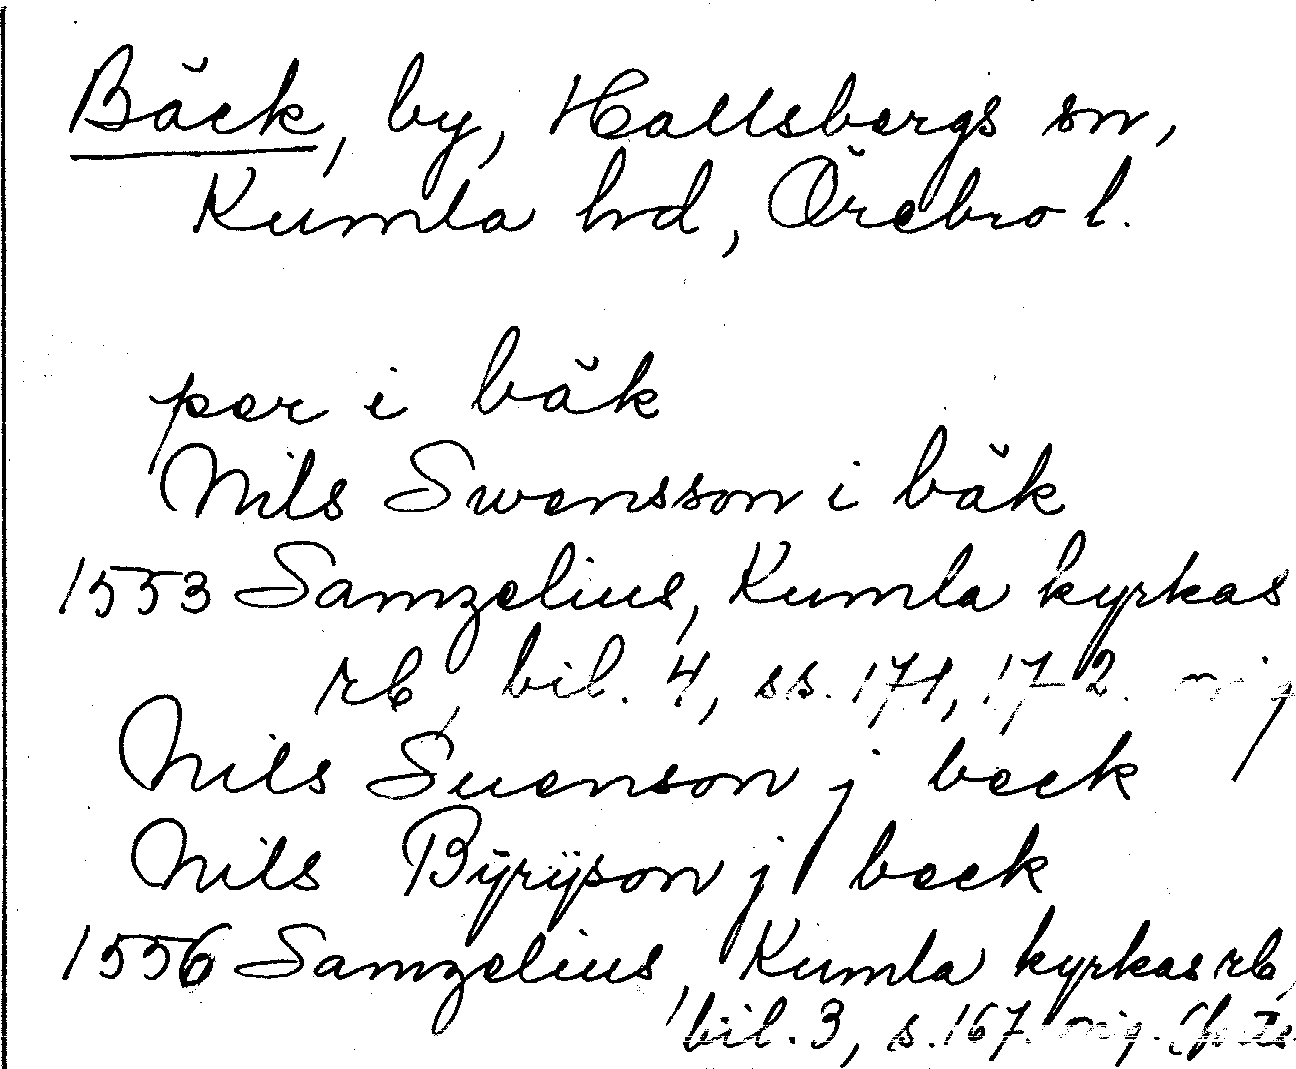 Bäck, by, Hallsbergs sn,
Kumla hd, Örebro l.
per i bäk
Nils Swensson i bäk
1553 Samzelius, Kumla kyrkas
rb, bil. 4, ss. 171, 172. orig
Nils Suenson j beck
Nils Bÿrÿson j beck
1556 Samzelius, Kumla kyrkas rb,
bil. 3, s. 167. orig.